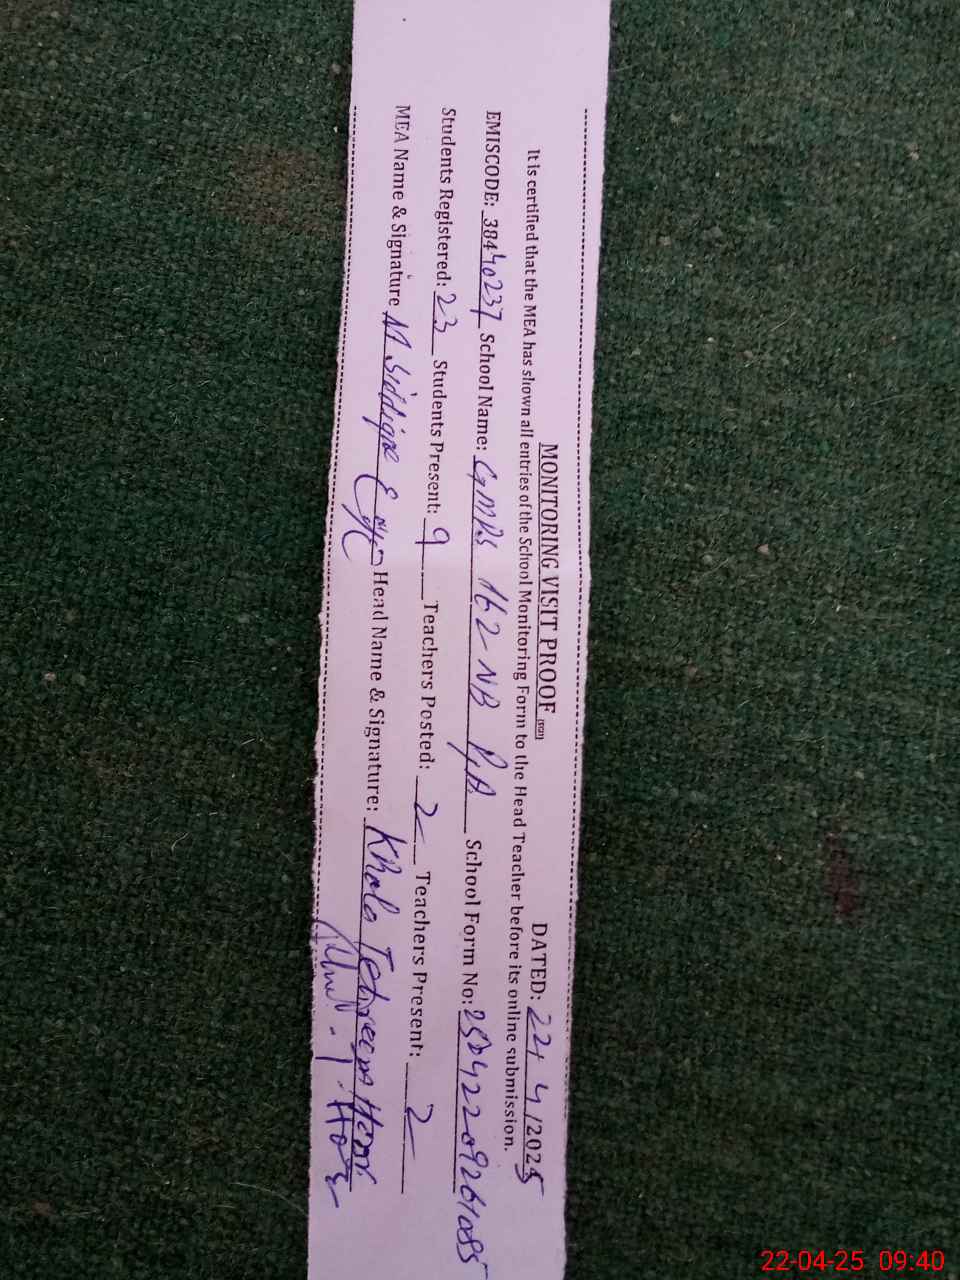 MONITORING VISIT PROOF DATED: 22/4/2025
It is certified that the MEA has shown all entries of the School Monitoring Form to the Head Teacher before its online submission.
EMISCODE: 38440237 School Name: GMPS 162 NB School Form No: 25042209261085
Students Registered: 23 Students Present: 9 Teachers Posted: 2 Teachers Present: 2
MEA Name & Signature M Siddique Head Name & Signature: Khola
22-04-25 09:40